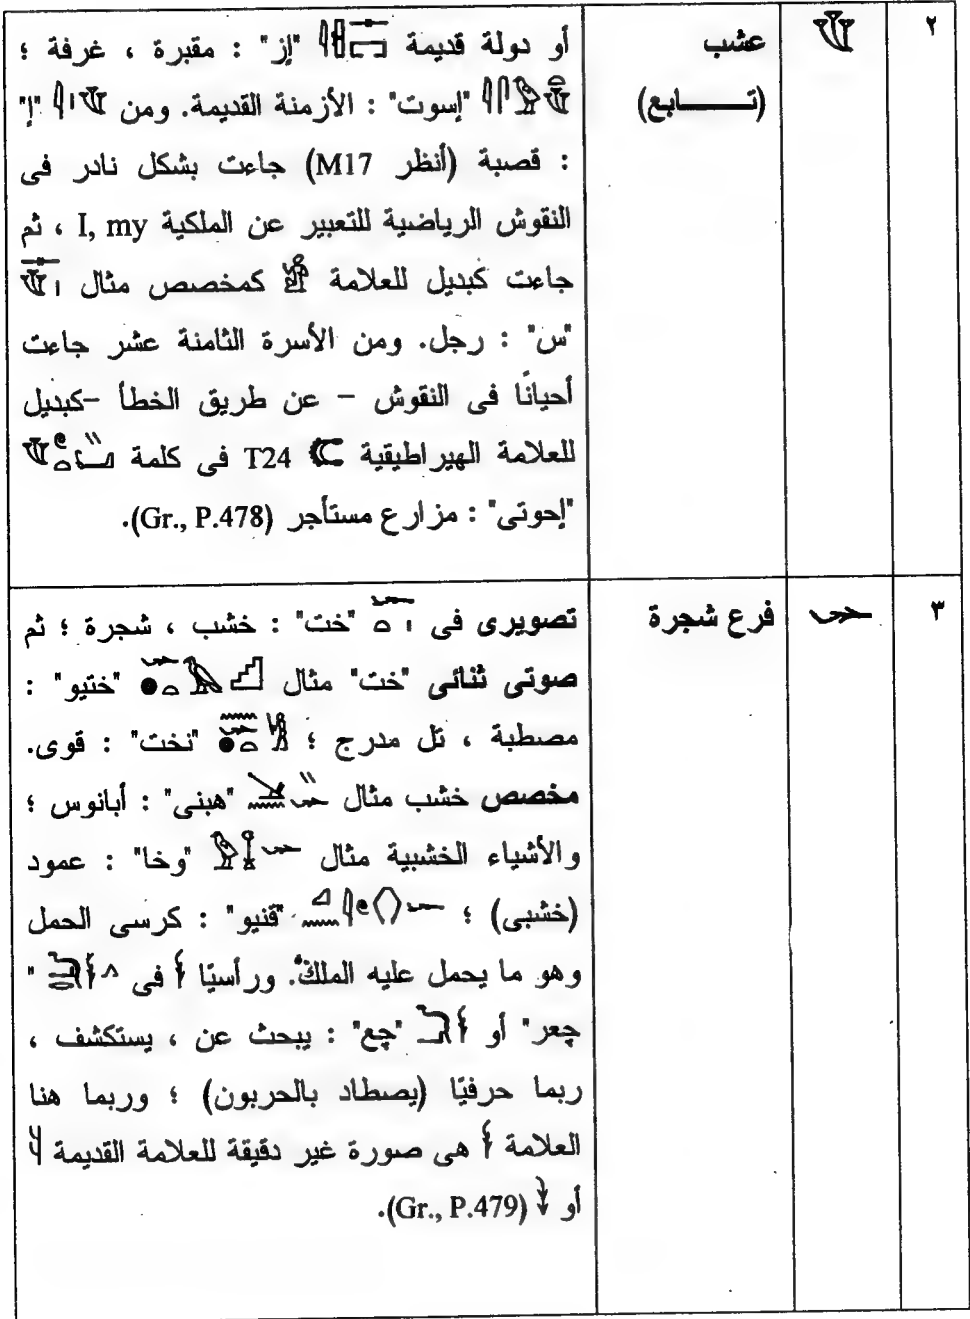 ٢
عشب
(تـــــــابع)
أو دولة قديمة "إز" : مقبرة ، غرفة ؛
"إسوت" : الأزمنة القديمة. ومن "إ"
: قصبة (أنظر M17) جاءت بشكل نادر فى
النقوش الرياضية للتعبير عن الملكية I, my ، ثم
جاءت كبديل للعلامة كمخصص مثال
"س" : رجل. ومن الأسرة الثامنة عشر جاءت
أحيانًا فى النقوش – عن طريق الخطأ –كبديل
للعلامة الهيراطيقية T24 فى كلمة
"إحوتى" : مزارع مستأجر (Gr., P.478).
٣
فرع شجرة
تصويرى فى "خت" : خشب ، شجرة ؛ ثم
صوتى ثنائى "خت" مثال "ختيو" :
مصطبة ، تل مدرج ؛ "نخت" : قوى.
مخصص خشب مثال "هبنى" : أبانوس ؛
والأشياء الخشبية مثال "وخا" : عمود
(خشبى) ؛ "قنيو" : كرسى الحمل
وهو ما يحمل عليه الملك. ورأسيًا فى "
چعر" أو "چع" : يبحث عن ، يستكشف ،
ربما حرفيًا (يصطاد بالحربون) ؛ وربما هنا
العلامة هى صورة غير دقيقة للعلامة القديمة
أو (Gr., P.479).